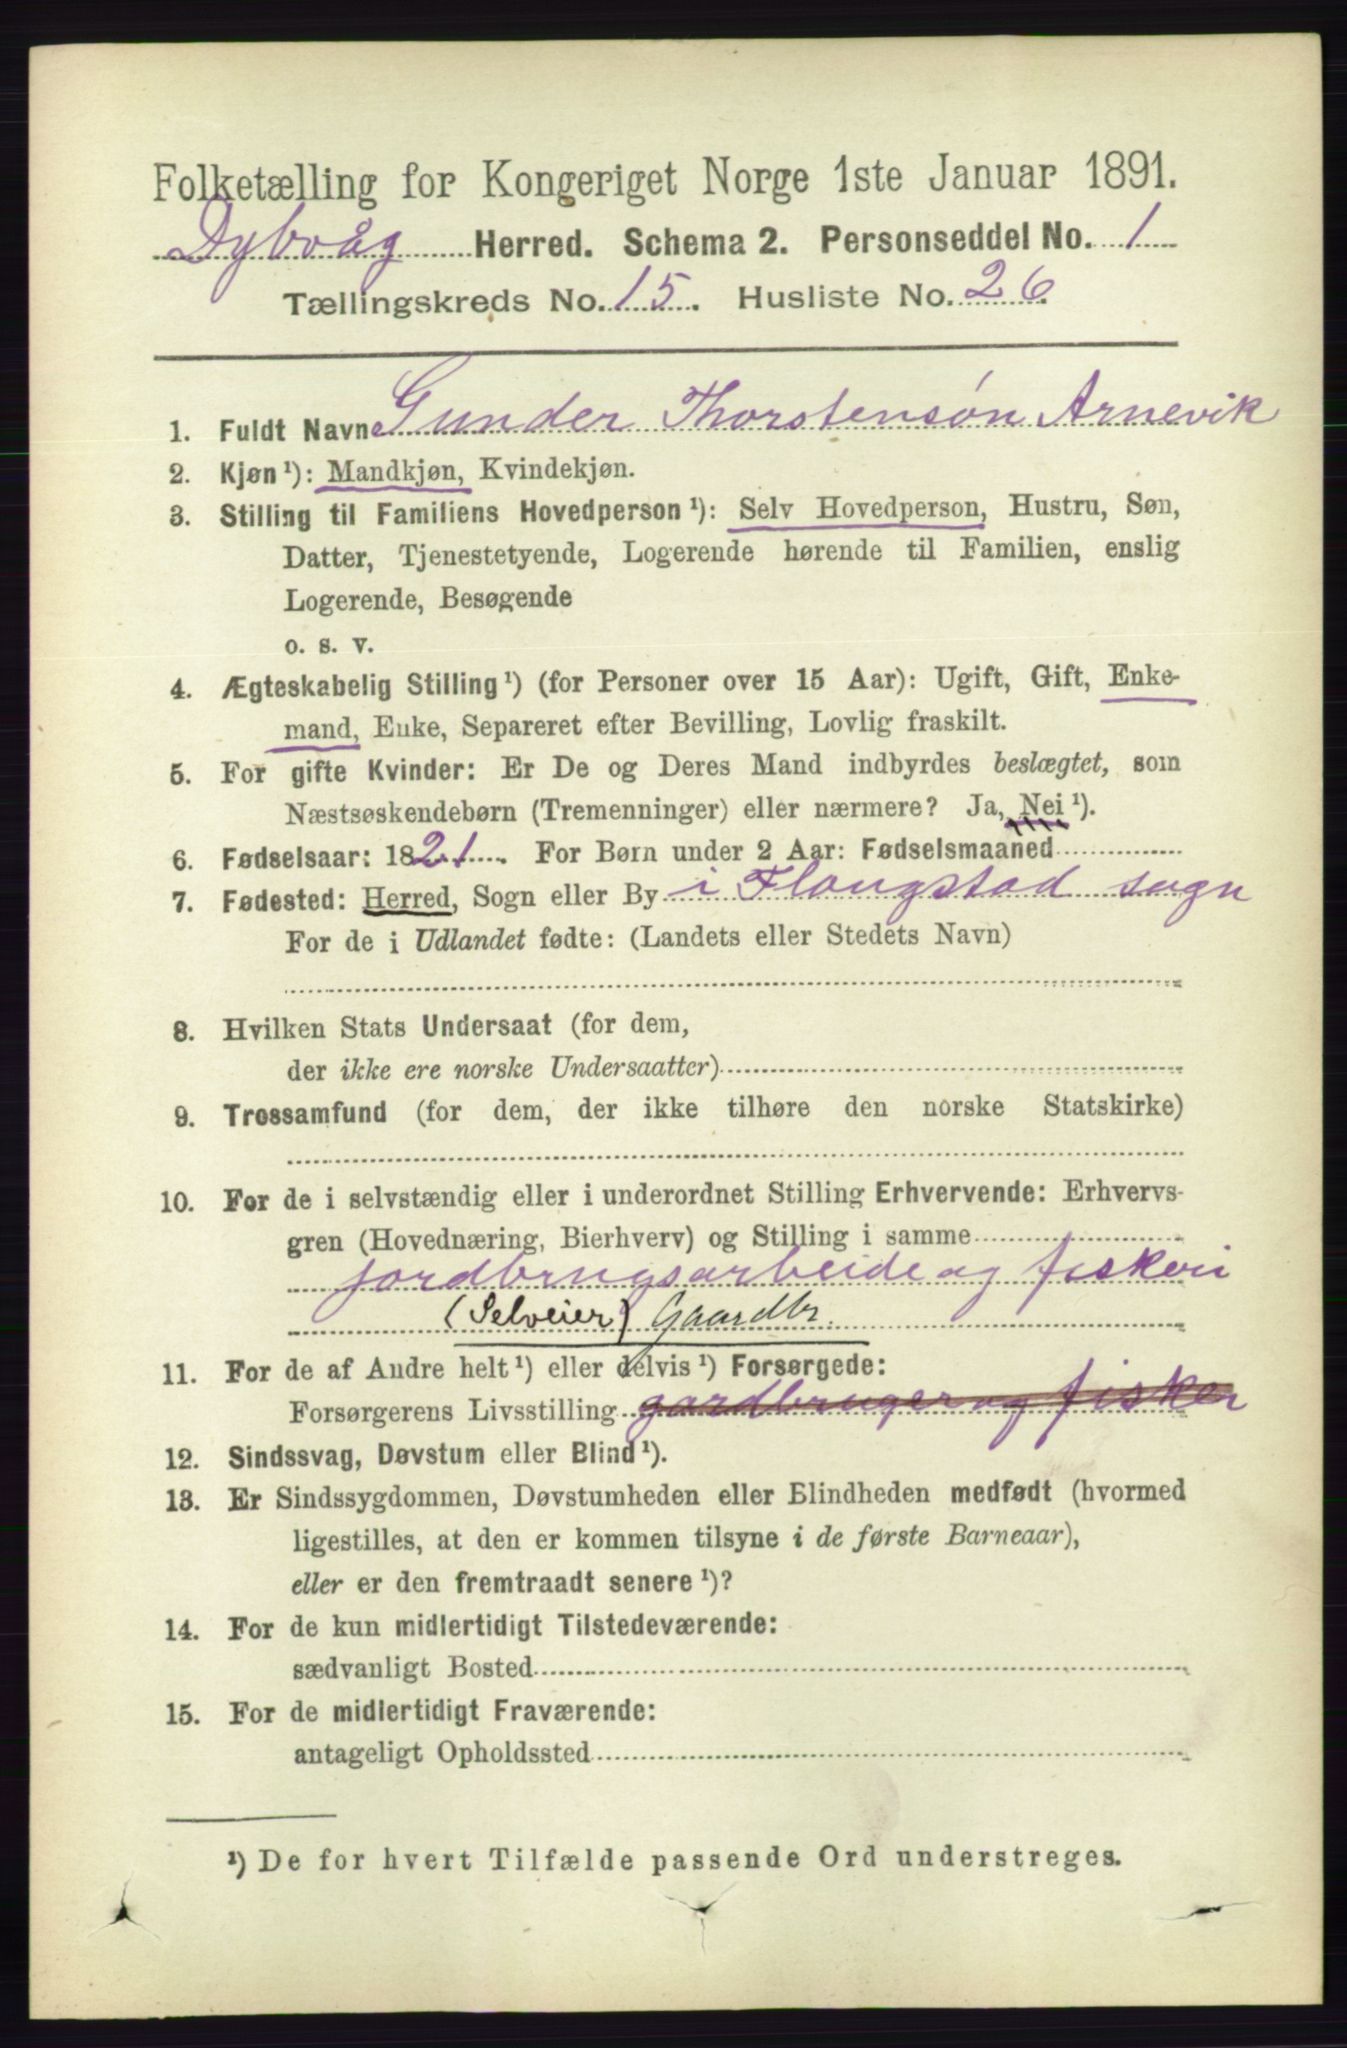 Folketælling for Kongeriget Norge 1ste Januar 1891.
Dybvåg Herred. Schema 2. Personseddel No. 1
Tællingskreds No. 15. Husliste No. 26.
1. Fuldt Navn Gunder Thorstensøn Arnevik
2. Kjøn ¹): Mandkjøn, Kvindekjøn.
3. Stilling til Familiens Hovedperson ¹): Selv Hovedperson, Hustru, Søn,
Datter, Tjenestetyende, Logerende hørende til Familien, enslig
Logerende, Besøgende
o. s. v.
4. Ægteskabelig Stilling ¹) (for Personer over 15 Aar): Ugift, Gift, Enke-
mand, Enke, Separeret efter Bevilling, Lovlig fraskilt.
5. For gifte Kvinder: Er De og Deres Mand indbyrdes beslægtet, som
Næstsøskendebørn (Tremenninger) eller nærmere? Ja, Nei ¹).
6. Fødselsaar: 1821. For Børn under 2 Aar: Fødselsmaaned
7. Fødested: Herred, Sogn eller By i Flaugstad sogn
For de i Udlandet fødte: (Landets eller Stedets Navn)
8. Hvilken Stats Undersaat (for dem,
der ikke ere norske Undersaatter)
9. Trossamfund (for dem, der ikke tilhøre den norske Statskirke)
10. For de i selvstændig eller i underordnet Stilling Erhvervende: Erhvervs-
gren (Hovednæring, Bierhverv) og Stilling i samme
jordbrugsarbeide og fiskeri
(Selveier) Gaardbr.
11. For de af Andre helt ¹) eller delvis ¹) Forsørgede:
Forsørgerens Livsstilling gardbruger og fisker
12. Sindssvag, Døvstum eller Blind ¹).
13. Er Sindssygdommen, Døvstumheden eller Blindheden medfødt (hvormed
ligestilles, at den er kommen tilsyne i de første Barneaar),
eller er den fremtraadt senere ¹)?
14. For de kun midlertidigt Tilstedeværende:
sædvanligt Bosted
15. For de midlertidigt Fraværende:
antageligt Opholdssted
¹) De for hvert Tilfælde passende Ord understreges.